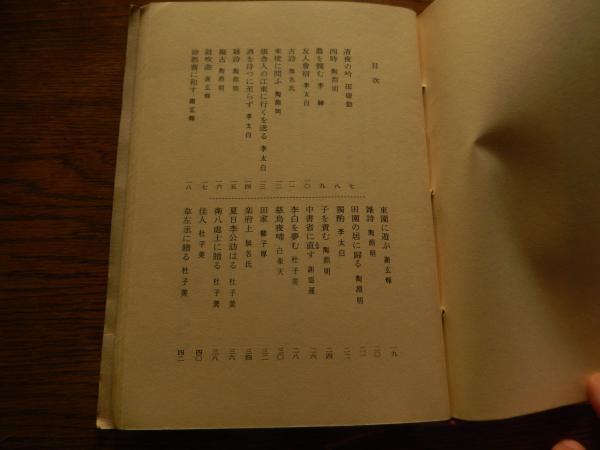 目次
清夜の吟 邵康節 七
四時 陶淵明 八
農を憫む 李紳 九
友人會宿 李太白 一〇
古詩 無名氏 一一
來使に問ふ 陶淵明 一二
張舎人の江東に行くを送る 李太白 一三
酒を待つに至らず 李太白 一四
雜詩 陶淵明 一五
擬古 陶淵明 一六
鼓吹曲 謝玄暉 一七
徐都曹に和す 謝玄暉 一八
東園に遊ぶ 謝玄暉 一九
雜詩 陶淵明 二〇
田園の居に歸る 陶淵明 二一
獨酌 李太白 二二
子を責む 陶淵明 二四
中書省に直す 謝靈運 二六
李白を夢む 杜子美 二八
慈烏夜啼 白樂天 三〇
田家 柳子厚 三二
樂府上 無名氏 三四
夏日李公訪はる 杜子美 三六
衛八處士に贈る 杜子美 三八
佳人 杜子美 四〇
韋左丞に贈る 杜子美 四二